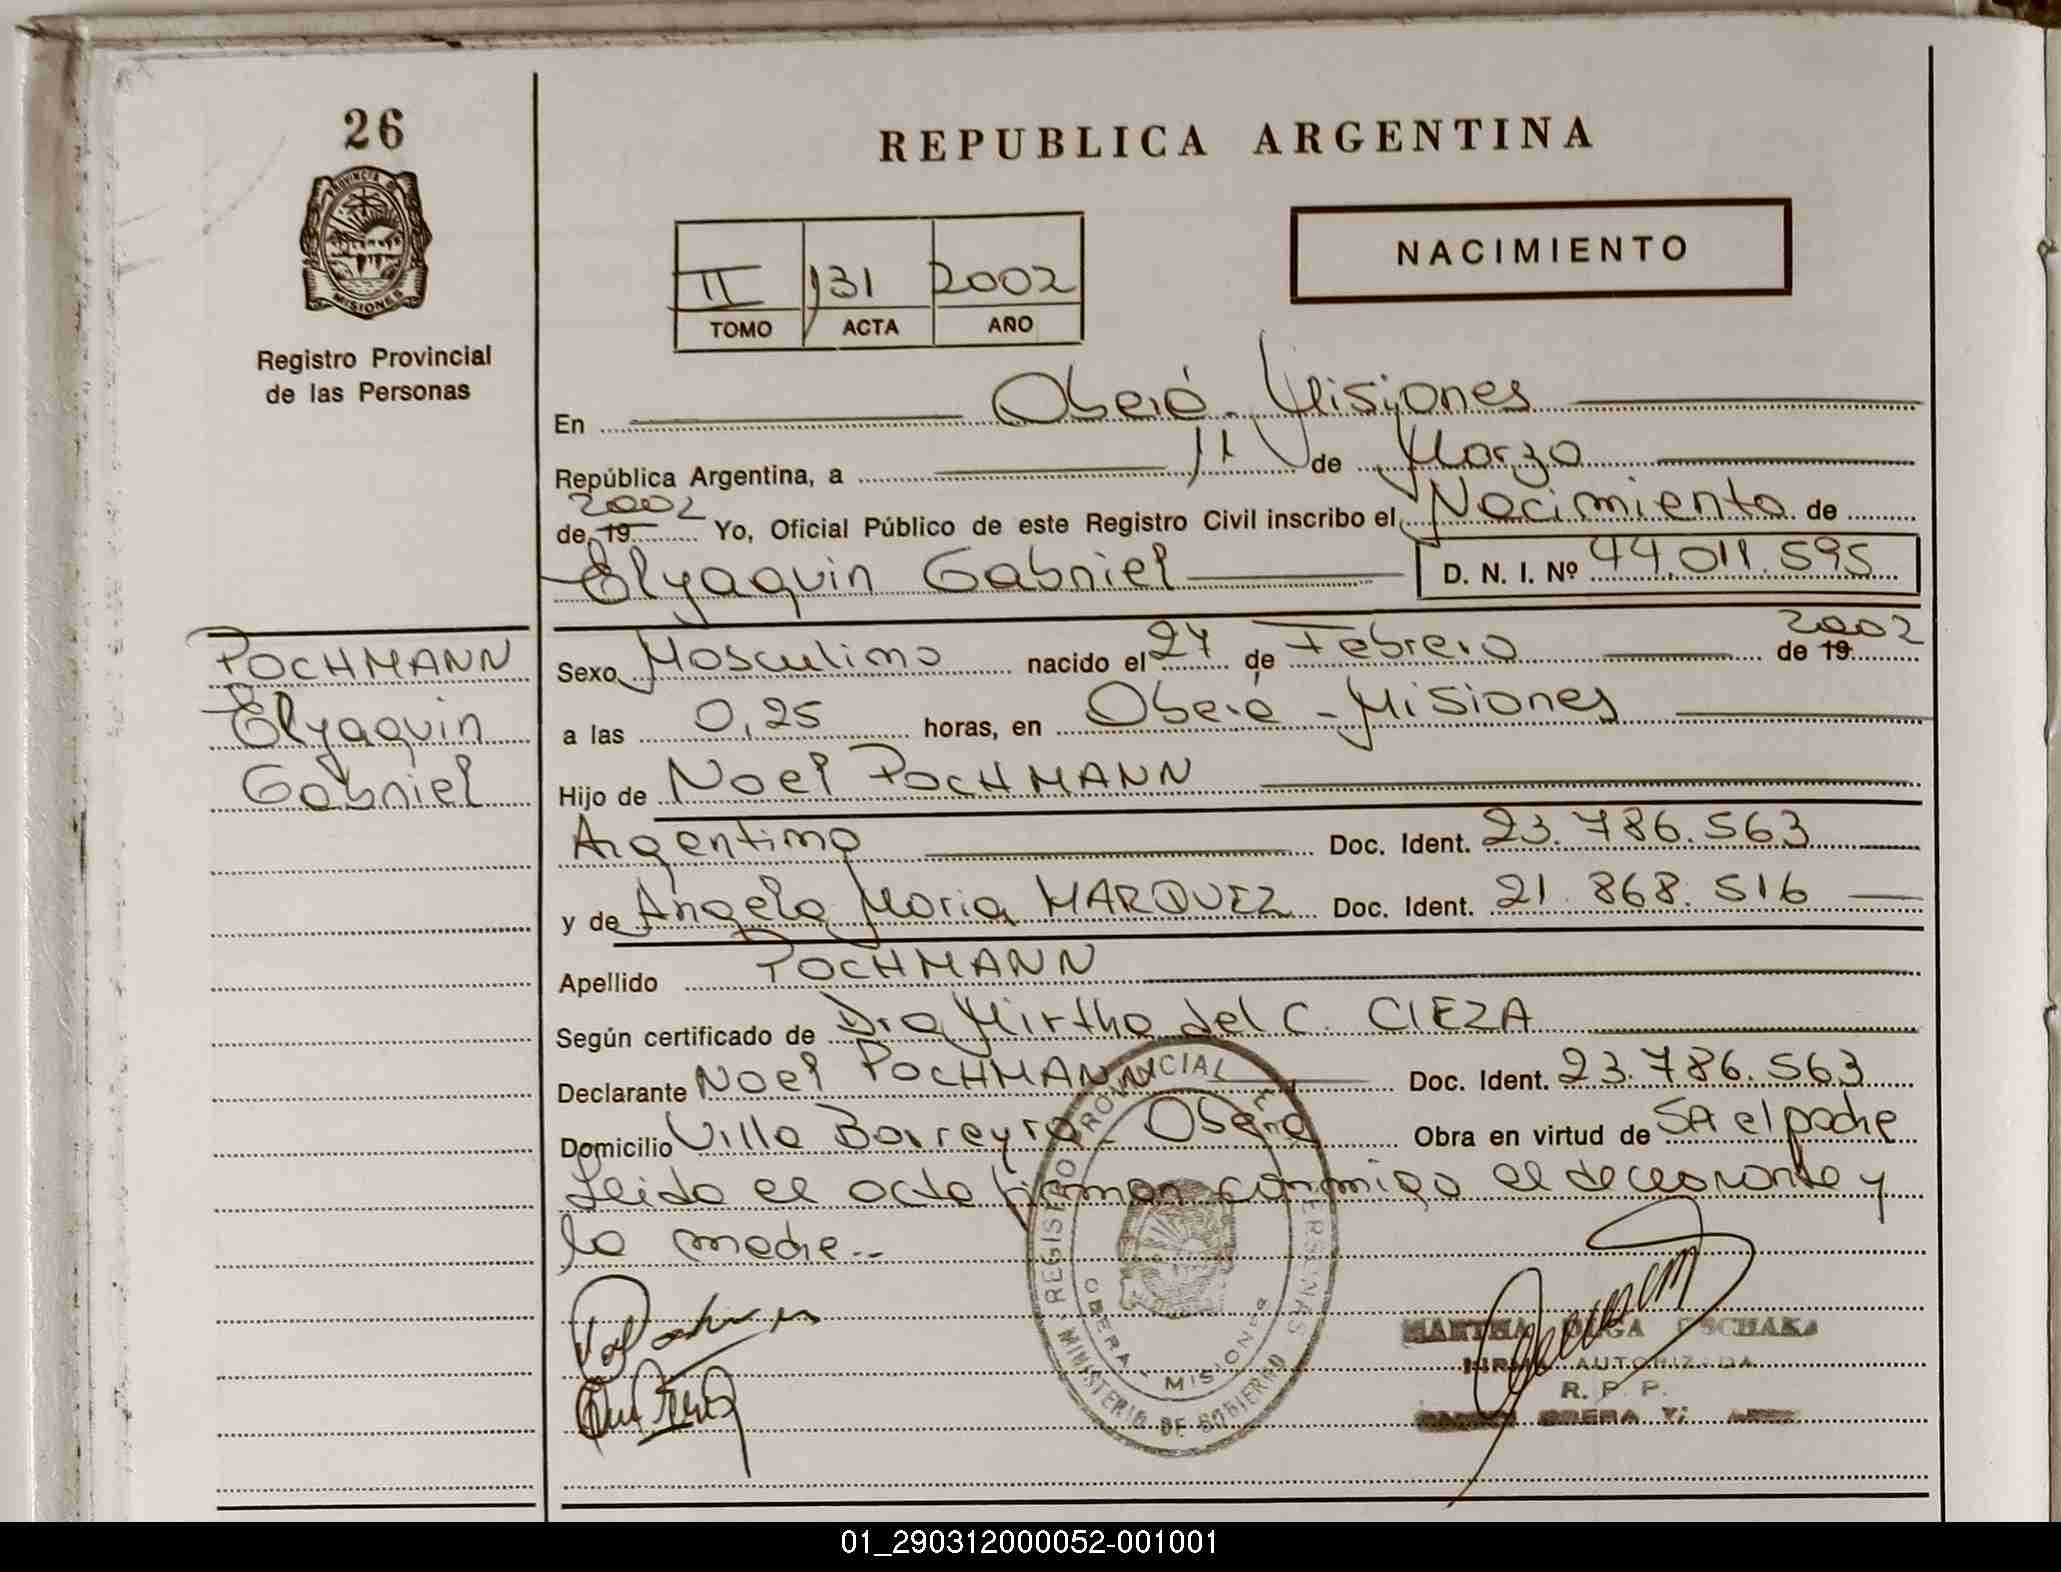 26
PROVINCIA DE
MISIONES
Registro Provincial
de las Personas
REPUBLICA ARGENTINA
NACIMIENTO
II 131 2002
TOMO ACTA AÑO
En Oberá - Misiones
República Argentina, a 11 de Marzo
2002
de 19 Yo, Oficial Público de este Registro Civil inscribo el Nacimiento de
Elyaquin Gabriel D. N. I. Nº 44.011.595
POCHMANN
Elyaquin
Gabriel
Sexo Masculino nacido el 27 de Febrero de 19 2002
a las 0,25 horas, en Oberá - Misiones
Hijo de Noel POCHMANN
Argentino Doc. Ident. 23.786.563
y de Angela Maria MARQUEZ Doc. Ident. 21.868.516
Apellido POCHMANN
Según certificado de Dra Mirtha del C. CIEZA
Declarante Noel POCHMANN Doc. Ident. 23.786.563
Domicilio Villa Barreyro - Oberá Obra en virtud de SA el padre
Leida el acta firman conmigo el declarante y
la madre..
REGISTRO PROVINCIAL DE PERSONAS
OBERA MISIONES
MINISTERIO DE GOBIERNO
MARTHA OLGA
FIRMA AUTORIZADA
R. P. P.
OBERA
01_290312000052-001001